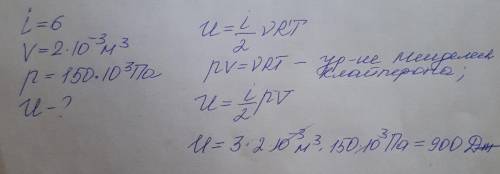 i = 6
V = 2·10⁻³ м³
p = 150·10³ Па
U - ?
U = i/2 νRT
pV = νRT – ур-ие Менделеев Клайперона;
U = i/2 pV
U = 3·2·10⁻³ м³·150·10³ Па = 900 Дж